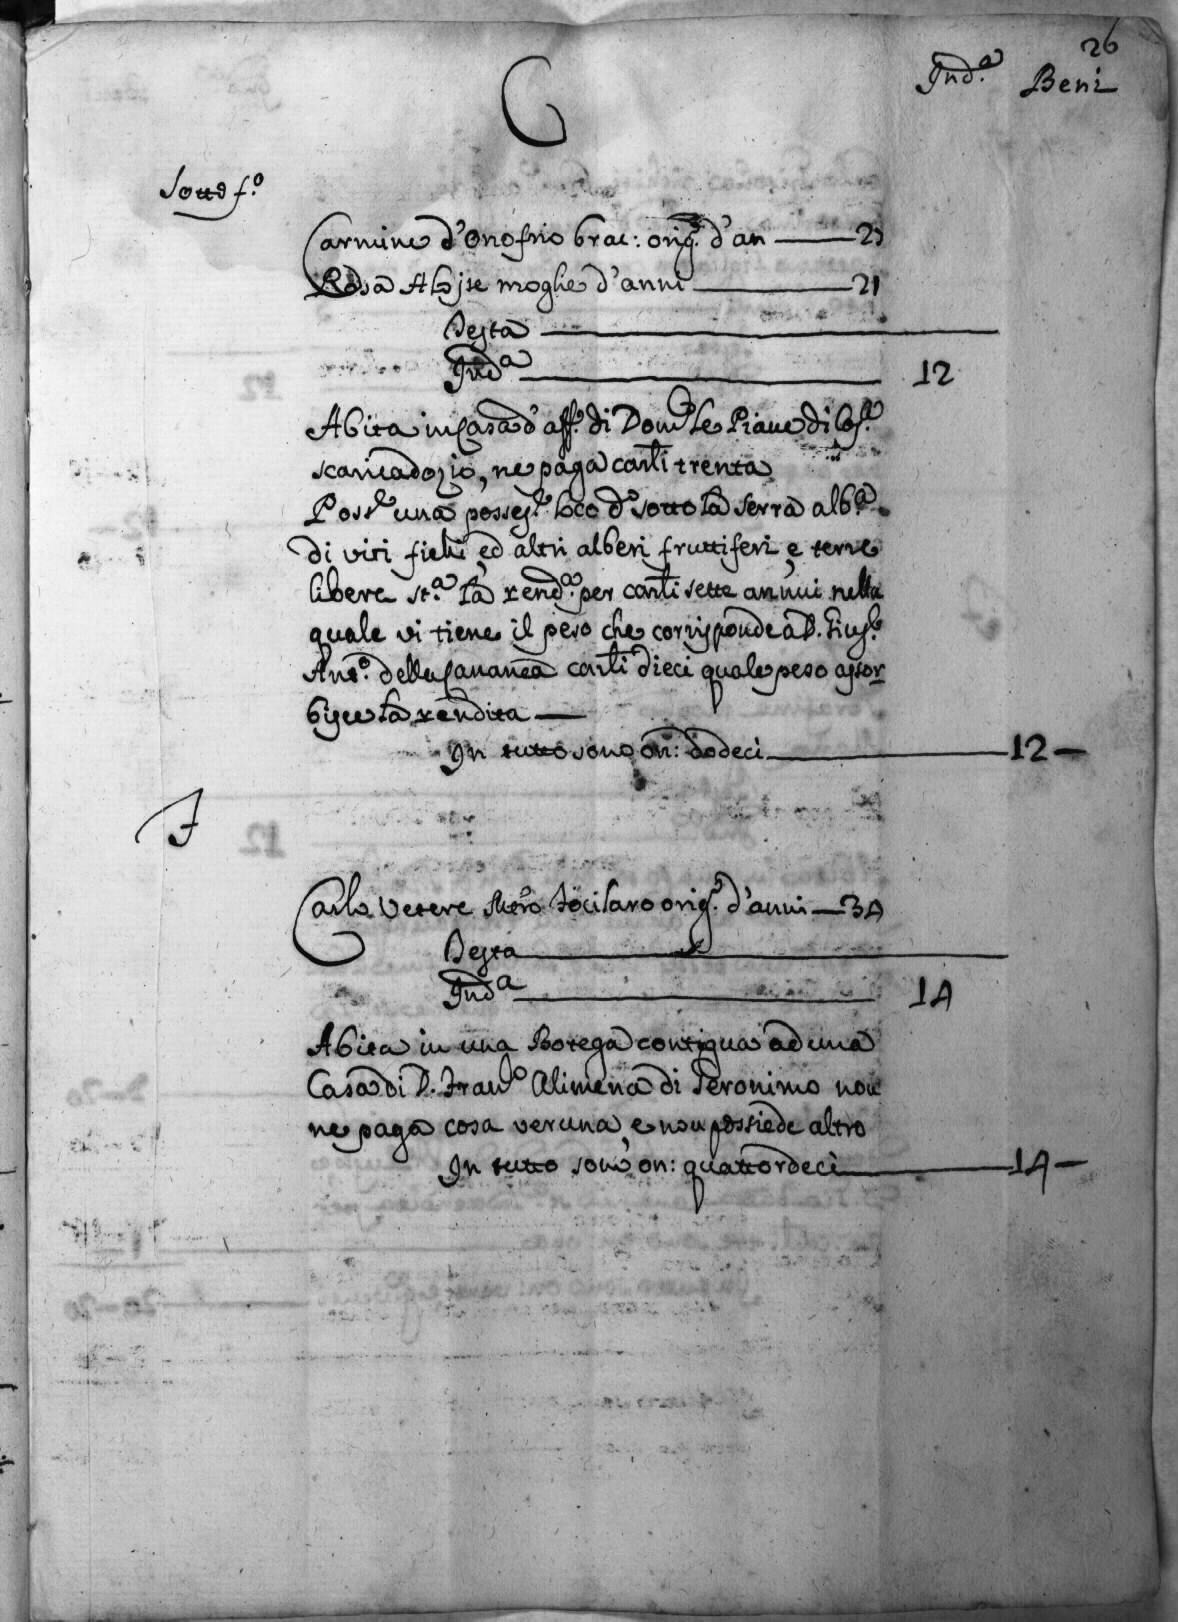 26
C
Ind.ª Beni
Sotto f.º
Carmine d'Onofrio brac: orig.º d'an — 25
Rosa Aloise moglie d'anni — 21
Testa —
Ind.ª — 12
Abita in Casa d'aff.º di Dom.co Le Piane di
, ne paga carli trenta
Poss.e una posses.e loco d.º sotto la serra alb.ª
di viti fichi, ed altri alberi fruttiferi, e terre
libere st.ª la rend.ª per carli sette annui nella
quale vi tiene il peso che corrisponde a D. Gius.e
Ant.º della Cananea carli dieci quale peso assor
bisce la rendita —
In tutto sono on: dodeci — 12 —
F
Carlo Vetere Mro orig.º d'anni — 34
Testa —
Ind.ª — 14
Abita in una Botega contigua ad una
Casa di D. Fran.co Alimena di Geronimo non
ne paga cosa veruna, e non possiede altro
In tutto sono on: quattordeci — 14 —